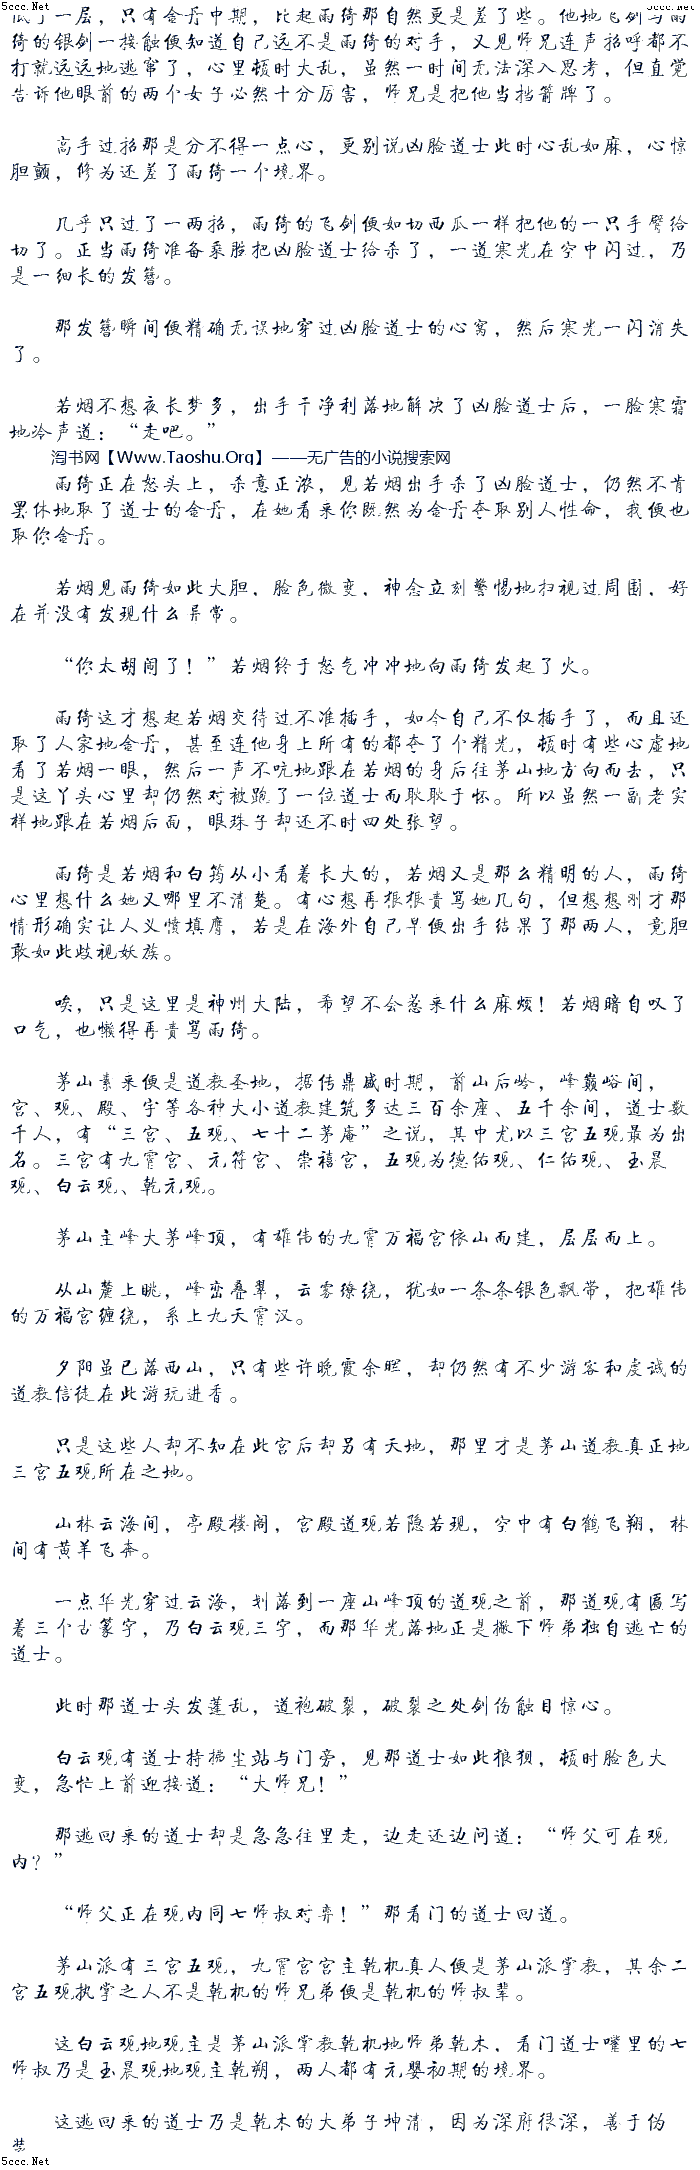 5ccc.Net 5ccc.Net
低了一层，只有金丹中期，比起雨绮那自然更是差了些。他地飞剑与雨
绮的银剑一接触便知道自己远不是雨绮的对手，又见师兄连声招呼都不
打就远远地逃窜了，心里顿时大乱，虽然一时间无法深入思考，但直觉
告诉他眼前的两个女子必然十分厉害，师兄是把他当挡箭牌了。
高手过招那是分不得一点心，更别说凶脸道士此时心乱如麻，心惊
胆颤，修为还差了雨绮一个境界。
几乎只过了一两招，雨绮的飞剑便如切西瓜一样把他的一只手臂给
切了。正当雨绮准备乘胜把凶脸道士给杀了，一道寒光在空中闪过，乃
是一细长的发簪。
那发簪瞬间便精确无误地穿过凶脸道士的心窝，然后寒光一闪消失
了。
若烟不想夜长梦多，出手干净利落地解决了凶脸道士后，一脸寒霜
地冷声道：“走吧。”
淘书网【Www.Taoshu.Org】——无广告的小说搜索网
雨绮正在怒头上，杀意正浓，见若烟出手杀了凶脸道士，仍然不肯
罢休地取了道士的金丹，在她看来你既然为金丹夺取别人性命，我便也
取你金丹。
若烟见雨绮如此大胆，脸色微变，神念立刻警惕地扫视过周围，好
在并没有发现什么异常。
“你太胡闹了！”若烟终于怒气冲冲地向雨绮发起了火。
雨绮这才想起若烟交待过不准插手，如今自己不仅插手了，而且还
取了人家地金丹，甚至连他身上所有的都夺了个精光，顿时有些心虚地
看了若烟一眼，然后一声不吭地跟在若烟的身后往茅山地方向而去，只
是这丫头心里却仍然对被跑了一位道士而耿耿于怀。所以虽然一副老实
样地跟在若烟后面，眼珠子却还不时四处张望。
雨绮是若烟和白筠从小看着长大的，若烟又是那么精明的人，雨绮
心里想什么她又哪里不清楚。有心想再狠狠责骂她几句，但想想刚才那
情形确实让人义愤填膺，若是在海外自己早便出手结果了那两人，竟胆
敢如此歧视妖族。
唉，只是这里是神州大陆，希望不会惹来什么麻烦！若烟暗自叹了
口气，也懒得再责骂雨绮。
茅山素来便是道教圣地，据传鼎盛时期，前山后岭，峰巅峪间，
宫、观、殿、宇等各种大小道教建筑多达三百余座、五千余间，道士数
千人，有“三宫、五观、七十二茅庵”之说，其中尤以三宫五观最为出
名。三宫有九霄宫、元符宫、崇禧宫，五观为德佑观、仁佑观、玉晨
观、白云观、乾元观。
茅山主峰大茅峰顶，有雄伟的九霄万福宫依山而建，层层而上。
从山麓上眺，峰峦叠翠，云雾缭绕，犹如一条条银色飘带，把雄伟
的万福宫缠绕，系上九天霄汉。
夕阳虽已落西山，只有些许晚霞余晖，却仍然有不少游客和虔诚的
道教信徒在此游玩进香。
只是这些人却不知在此宫后却另有天地，那里才是茅山道教真正地
三宫五观所在之地。
山林云海间，亭殿楼阁，宫殿道观若隐若现，空中有白鹤飞翔，林
间有黄羊飞奔。
一点华光穿过云海，划落到一座山峰顶的道观之前，那道观有匾写
着三个古篆字，乃白云观三字，而那华光落地正是撇下师弟独自逃亡的
道士。
此时那道士头发蓬乱，道袍破裂，破裂之处剑伤触目惊心。
白云观有道士持拂尘站与门旁，见那道士如此狼狈，顿时脸色大
变，急忙上前迎接道：“大师兄！”
那逃回来的道士却是急急往里走，边走还边问道：“师父可在观
内？”
“师父正在观内同七师叔对弈！”那看门的道士回道。
茅山派有三宫五观，九霄宫宫主乾机真人便是茅山派掌教，其余二
宫五观执掌之人不是乾机的师兄弟便是乾机的师叔辈。
这白云观地观主是茅山派掌教乾机地师弟乾木，看门道士嘴里的七
师叔乃是玉晨观地观主乾朔，两人都有元婴初期的境界。
这逃回来的道士乃是乾木的大弟子坤清，因为深府很深，善于伪
装
5ccc.Net